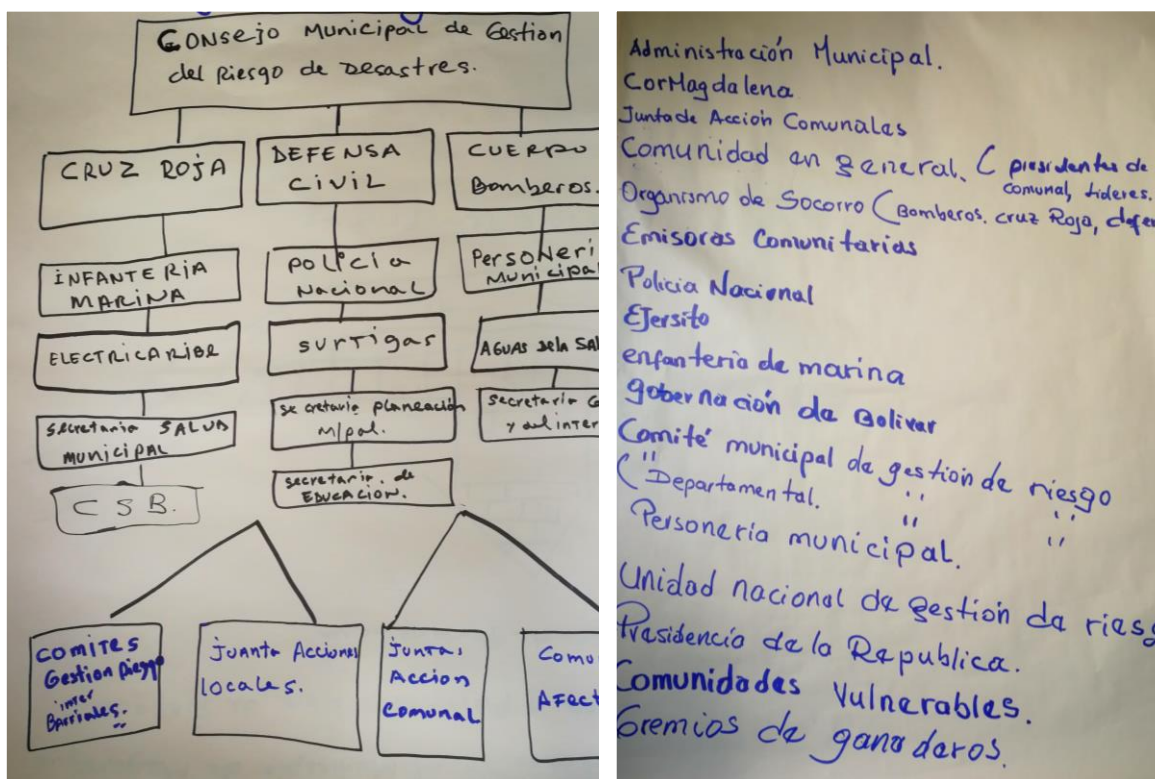 Consejo Municipal de Gestion
del Riesgo de Desastres.
CRUZ ROJA
DEFENSA
CIVIL
CUERPO
Bomberos.
INFANTERIA
MARINA
POLICIA
Nacional
PersoNeri
Municipal
ELECTRICARIBE
SURTIgas
AGUAS dela SAB
secretaria SALUD
MUNICIPAL
secretaria planeación
M/pal.
secretaria G
y del inter
secretaria. de
EDUCACION.
C S B.
COMITES
Gestion Riesgo
inter
Barriales.
Juanta Acciones
locales.
Juntas
Accion
Comunal
Como
AFect
Administración Municipal.
CorMagdalena
Junta de Acción Comunales
Comunidad en general. ( presidentes de
comunal, lideres.
Organismo de Socorro ( Bomberos. cruz Roja, defen
Emisoras Comunitarias
Policia Nacional
Ejersito
enfanteria de marina
gobernación de Bolivar
Comité municipal de gestion de riesgo
( " Departamental. " "
Personeria municipal. " "
Unidad nacional de gestion de riesg
Presidencia de la Republica.
Comunidades Vulnerables.
Gremios de ganaderos.